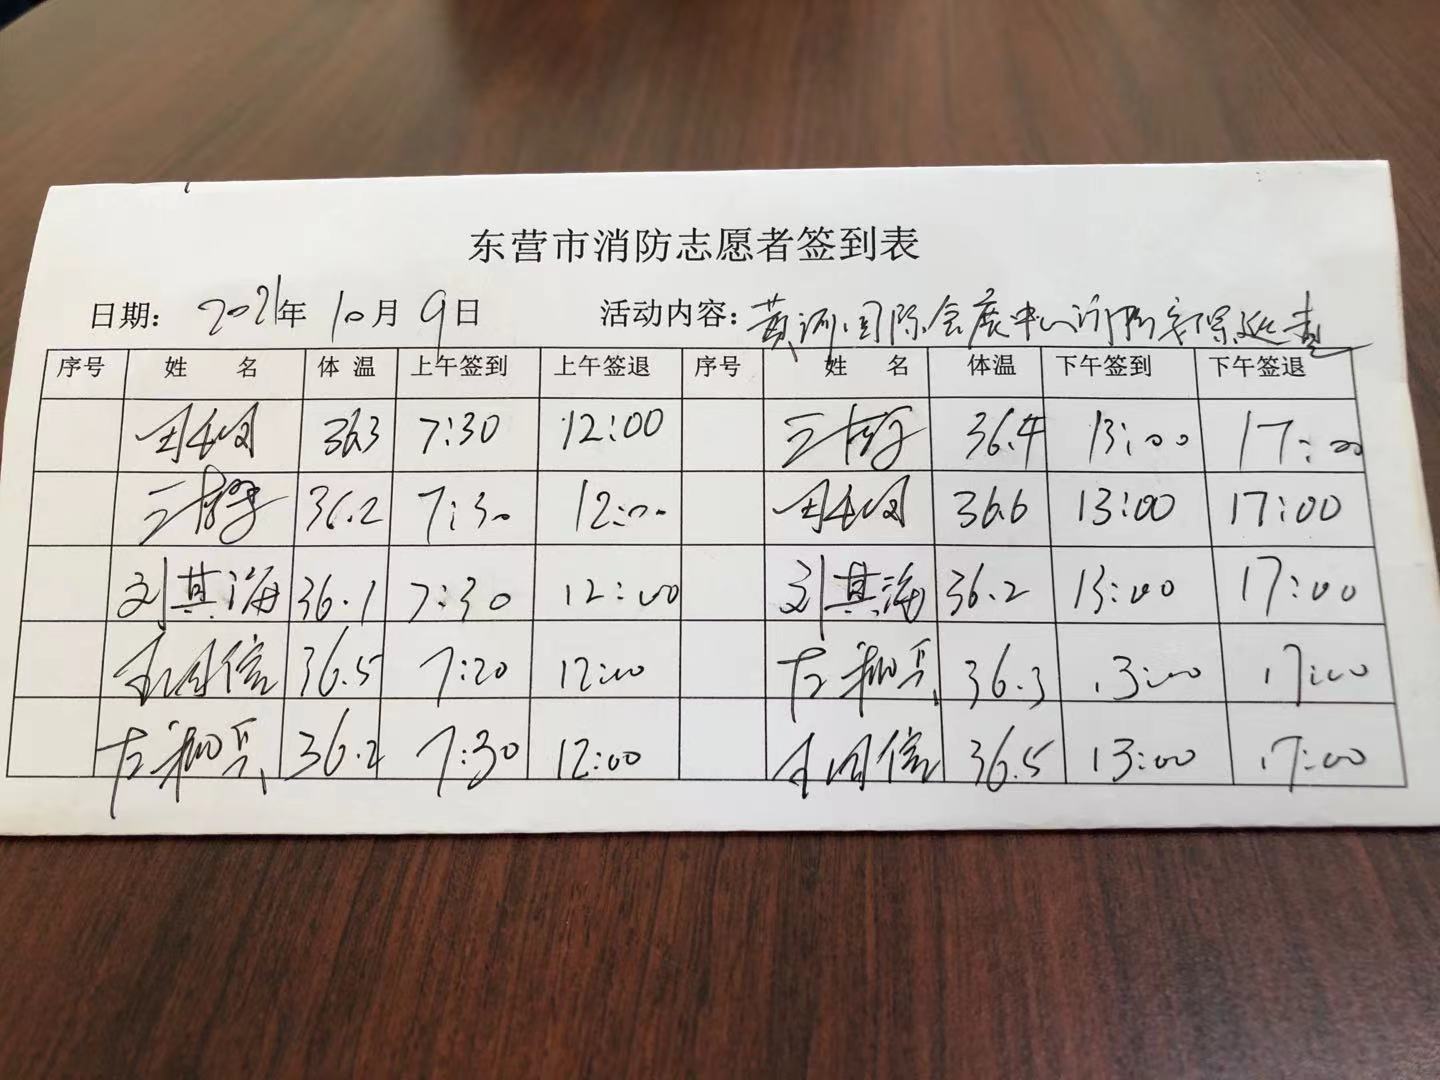 东营市消防志愿者签到表
日期: 2021年 10月 9日 活动内容: 黄河国际会展中心消防安保巡查
序号 姓 名 体 温 上午签到 上午签退 序号 姓 名 体温 下午签到 下午签退
36.3 7:30 12:00 36.4 13:00 17:00
36.2 7:30 12:00 36.6 13:00 17:00
刘其海 36.1 7:30 12:00 刘其海 36.2 13:00 17:00
36.5 7:20 12:00 36.3 13:00 17:00
36.2 7:30 12:00 36.5 13:00 17:00